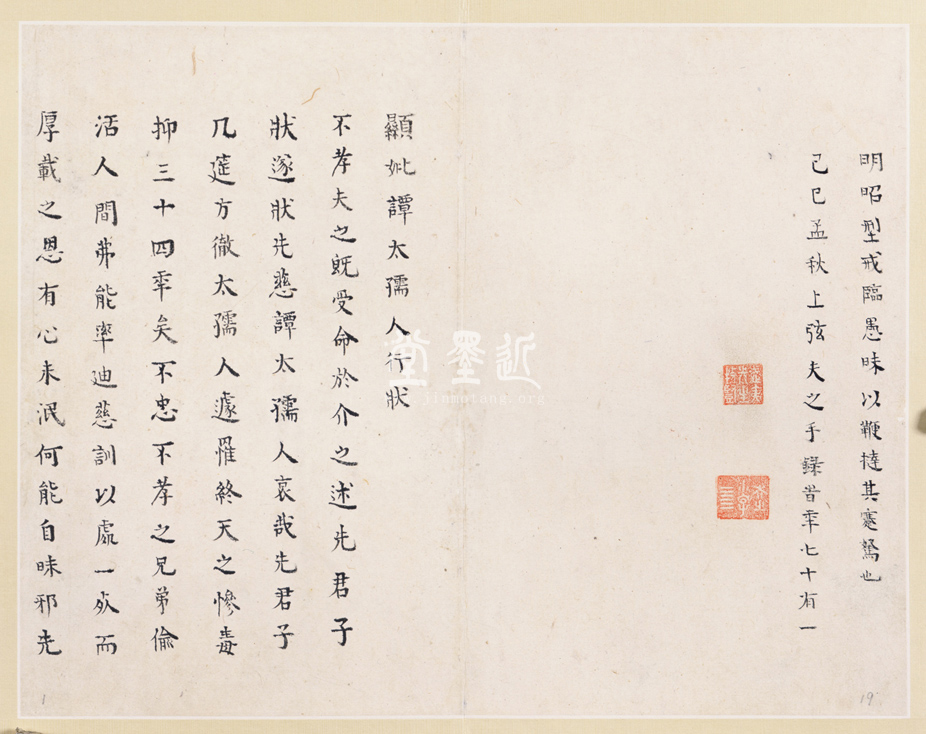 明昭型戒臨愚昧以鞭撻其蹇駑也
己巳孟秋上弦夫之手錄昔年七十有一
顯妣譚太孺人行狀
不孝夫之旣受命於介之述先君子
狀遂狀先慈譚太孺人哀哉先君子
几筵方徹太孺人遽罹終天之慘毒
抑三十四年矣不忠不孝之兄弟偷
活人間弗能率迪慈訓以處一死而
厚載之恩有心未泯何能自昧邪先
近墨堂
jinmotang.org
19
1